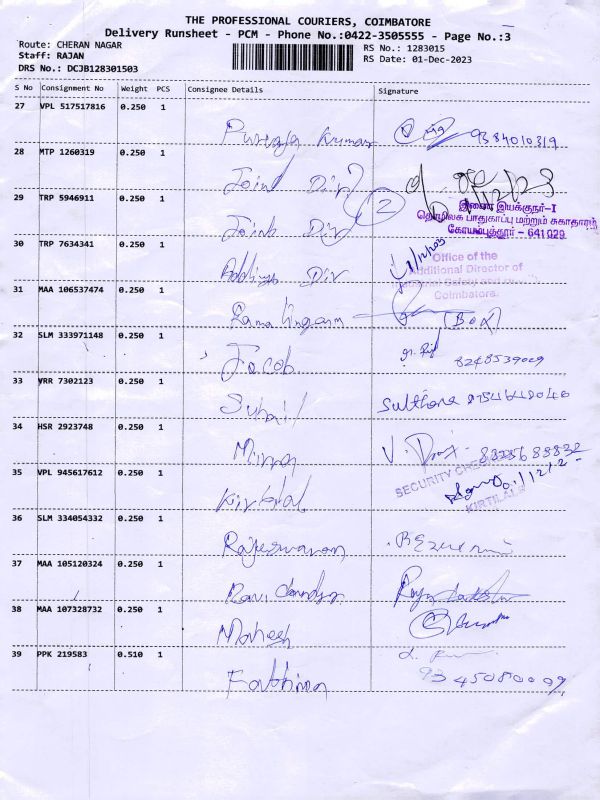 THE PROFESSIONAL COURIERS, COIMBATORE
Delivery Runsheet - PCM - Phone No.:0422-3505555 - Page No.:3
Route: CHERAN NAGAR RS No.: 1283015
Staff: RAJAN RS Date: 01-Dec-2023
DRS No.: DCJB128301503
S No Consignment No Weight PCS Consignee Details Signature
27 VPL 517517816 0.250 1
Kumar 9384010319
28 MTP 1260319 0.250 1
Joint Dir
29 TRP 5946911 0.250 1
2
இணை இயக்குநர்-I
தொழிலக பாதுகாப்பு மற்றும் சுகாதாரம்
கோயம்புத்தூர் - 641029
Joint Dir
30 TRP 7634341 0.250 1
Office of the
Additional Director of
Industrial Safety and
Coimbatore.
Dir
31 MAA 106537474 0.250 1
Rama lingam (BOX)
32 SLM 333971148 0.250 1
Jacob 8248539009
33 VRR 7302123 0.250 1
Sunil Sulthana
34 HSR 2923748 0.250 1
SECURITY
KIRTILALS
35 VPL 945617612 0.250 1
Kirtilal
36 SLM 334054332 0.250 1
Rajeswaran
37 MAA 105120324 0.250 1
Ravi Chandra
38 MAA 107328732 0.250 1
Mahesh
39 PPK 219583 0.510 1
Fathima 9345080009